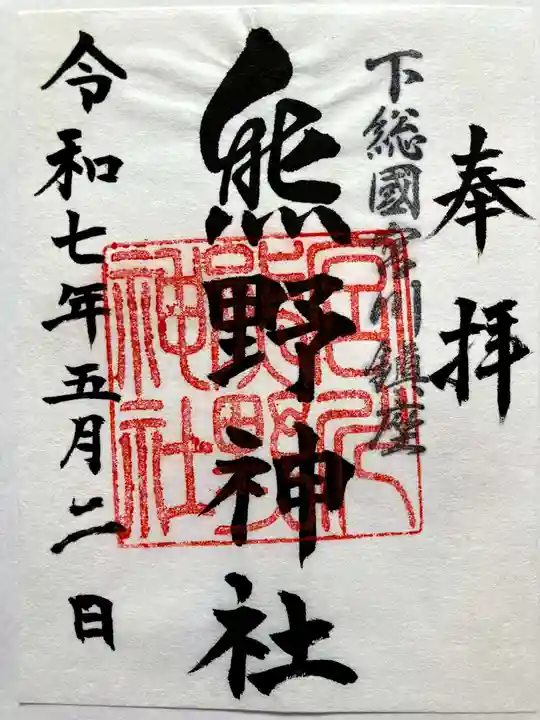 奉拝
下総國宮川鎮座
熊野神社
宮川熊野神社
令和七年五月二日